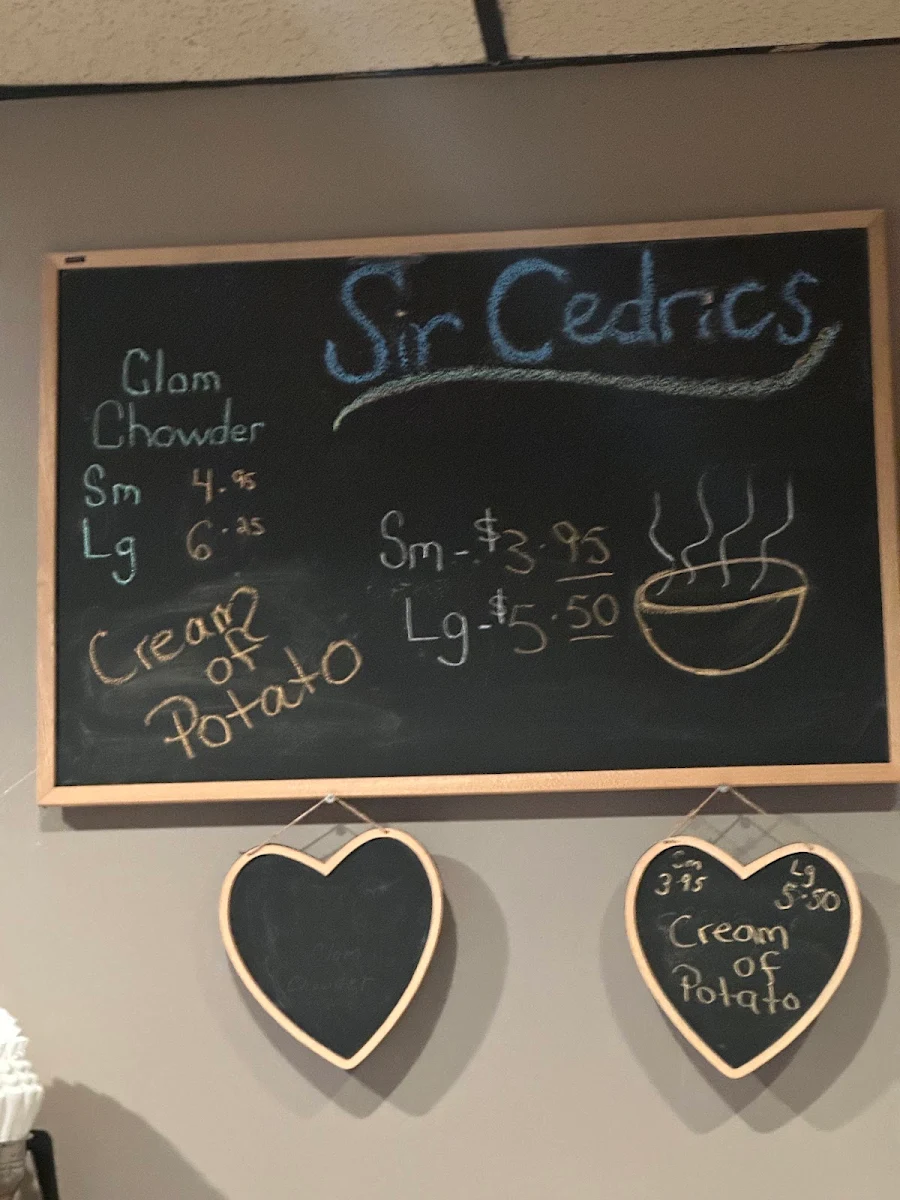 Sir Cedrics
Clam
Chowder
Sm 4.95
Lg 6.25
Sm-$3.95
Lg-$5.50
Cream
of
Potato
Sm Lg
3.95 5.50
Cream
of
Potato